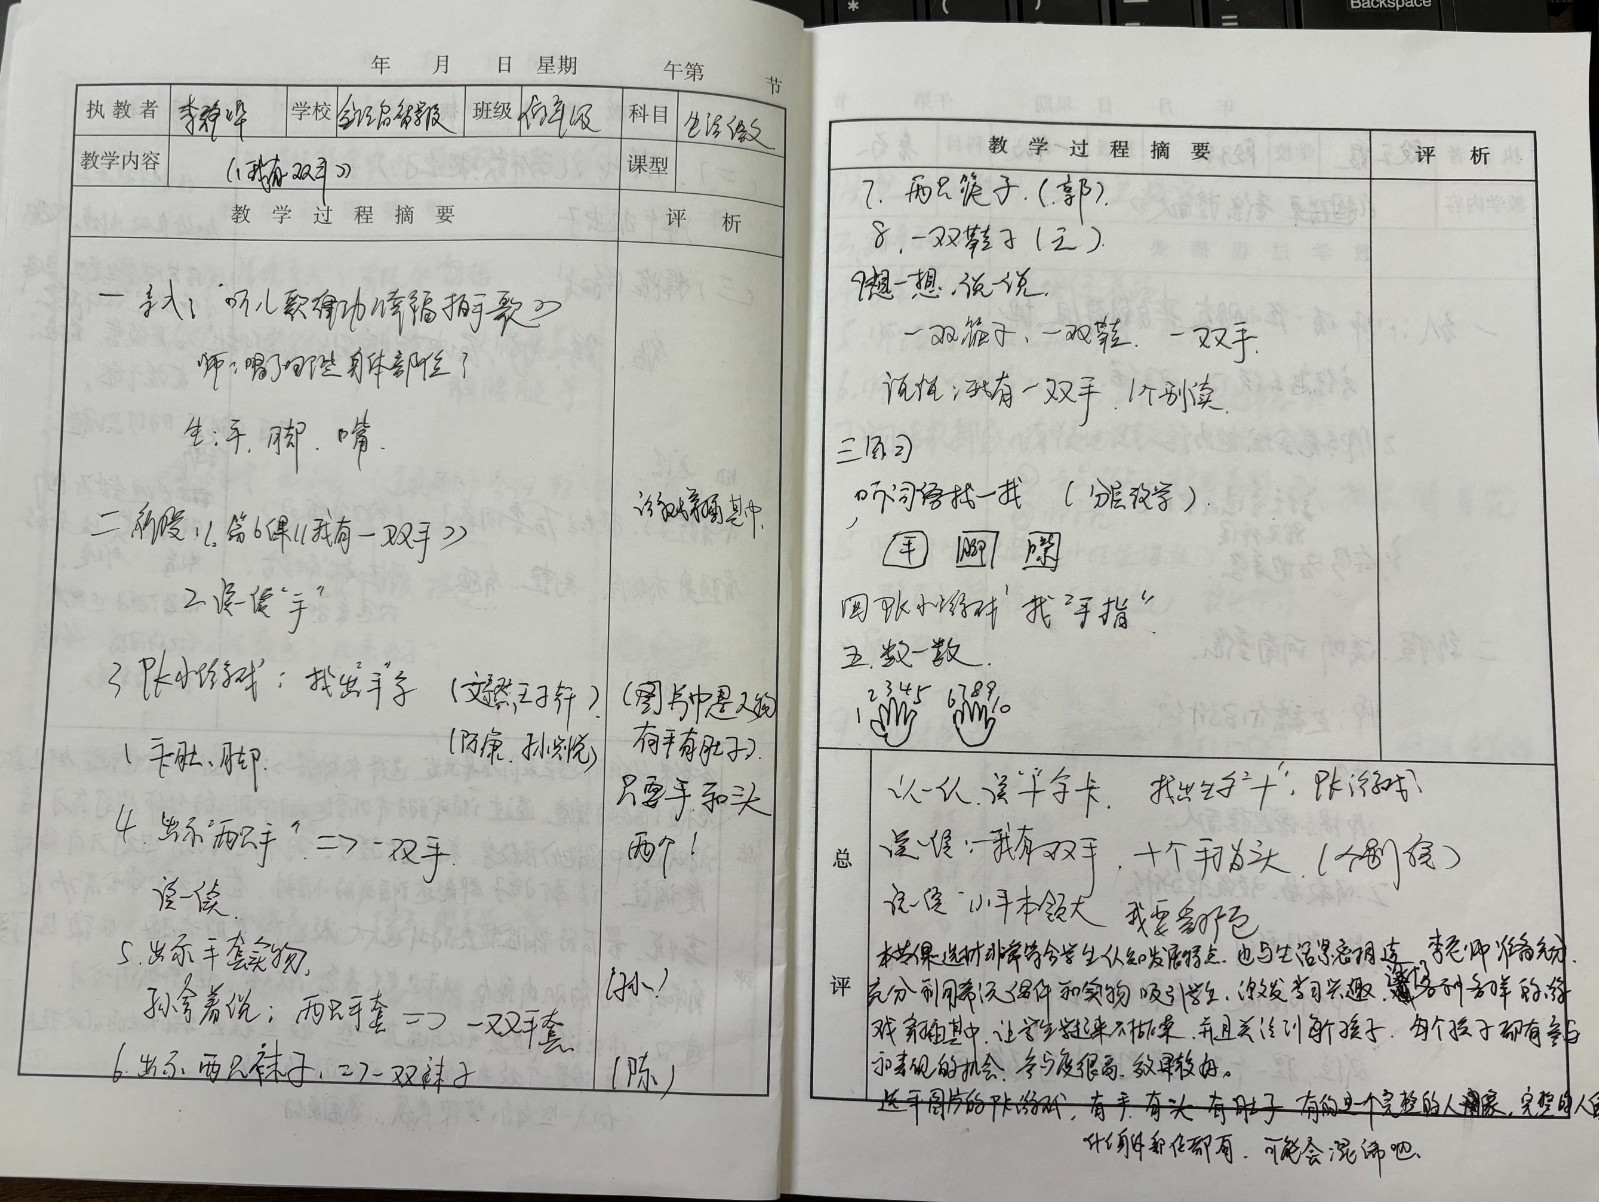 Backspace
年 月 日 星期 午第 节
执教者 李 学校 班级 年级 科目 生活语文
教学内容 《我有一双手》 课型
教学过程摘要 评析
一 导入：听儿歌律动《幸福拍手歌》
师：唱了哪些身体部位？
生：手、脚、嘴.
二 新授 1. 第6课《我有一双手》
游戏穿插其中.
2. 读一读“手”
3 PK小游戏：找出“手”字 (王子轩).
(陈康、孙)
(图片中是人物
有手有肚子).
只要手和头
两个！
1 手、肚、脚.
4. 出示“两只手” => 一双手.
读一读.
5. 出示手套实物,
孙拿着说：两只手套 => 一双手套 (孙)
6. 出示两只袜子. => 一双袜子 (陈)
教学过程摘要 评析
7. 两只筷子.(郭).
8. 一双鞋子(王).
9想一想，说一说.
一双筷子、一双鞋. 一双手.
说说：我有一双手. 个别读.
三 练习
听词语找一找 (分层教学).
手 脚 嘴
四 PK小游戏 找“手指”
五. 数一数.
1 2 3 4 5 6 7 8 9 10
总评
认一认，读“手”字卡. 找出生字“手”：PK游戏
读一读：我有一双手，十个手指头 (个别读)
读一读“小手本领大 我要
本节课选材非常符合学生认知发展特点，也与生活紧密相连，李老师准备充分.
充分利用课件和实物吸引学生，激发学习兴趣，各种各样的游
戏穿插其中，让学生学起来不枯燥，并且关注到每个孩子，每个孩子都有参与
和表现的机会，参与度很高，效果较好。
选手图片的PK游戏，有手、有头、有肚子 有的是一个完整的人 完整的人的
什么身体部位都有，可能会混淆吧.